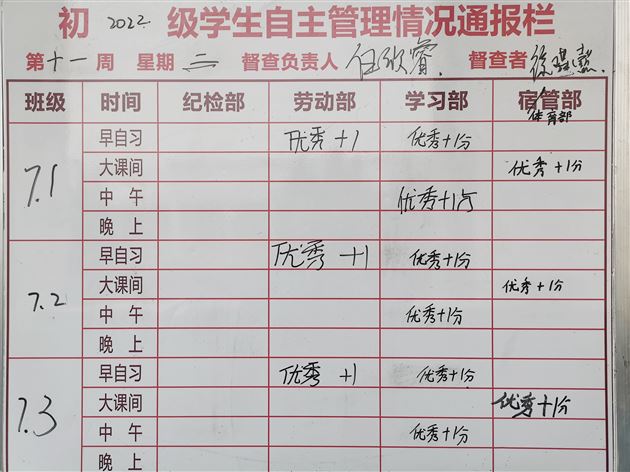 初 2022 级学生自主管理情况通报栏
第十一周 星期二 督查负责人 任欣睿 督查者 徐
班级 时间 纪检部 劳动部 学习部 宿管部
体育部
7.1 早自习 优秀+1 优秀+1分
大课间 优秀+1分
中午 优秀+1分
晚上
7.2 早自习 优秀+1 优秀+1分
大课间 优秀+1分
中午 优秀+1分
晚上
7.3 早自习 优秀+1 优秀+1分
大课间 优秀+1分
中午 优秀+1分
晚上